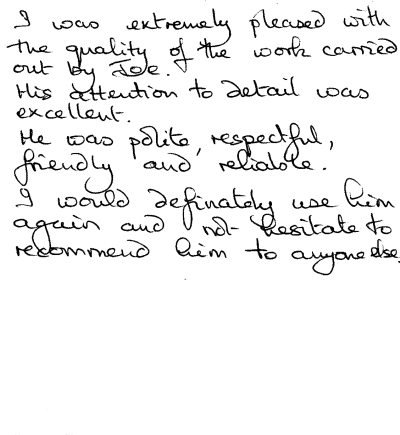 I was extremely pleased with
the quality of the work carried
out by Joe.
His attention to detail was
excellent.
He was polite, respectful,
friendly and reliable.
I would definately use him
again and not hesitate to
recommend him to anyone else.